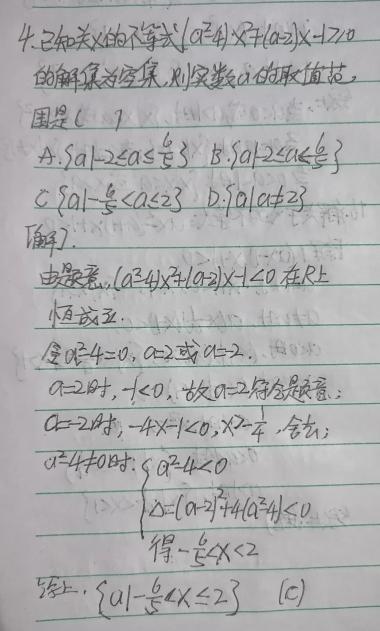 4.已知关x的不等式(a²-4)x²+(a-2)x-1≥0
的解集为空集,则实数a的取值范
围是( )
A.{a|-2≤a≤6/5} B.{a|-2≤a<6/5}
C{a|-6/5<a≤2} D.{a|a≠2}
[解].
由题意,(a²-4)x²+(a-2)x-1<0在R上
恒成立.
令a²-4=0,a=2或a=-2.
a=2时,-1<0,故a=2符合题意;
a=-2时,-4x-1<0,x>-1/4,舍去;
a²-4≠0时:{a²-4<0
Δ=(a-2)²+4(a²-4)<0
得-6/5<x<2
综上.{a|-6/5<x≤2} (C)